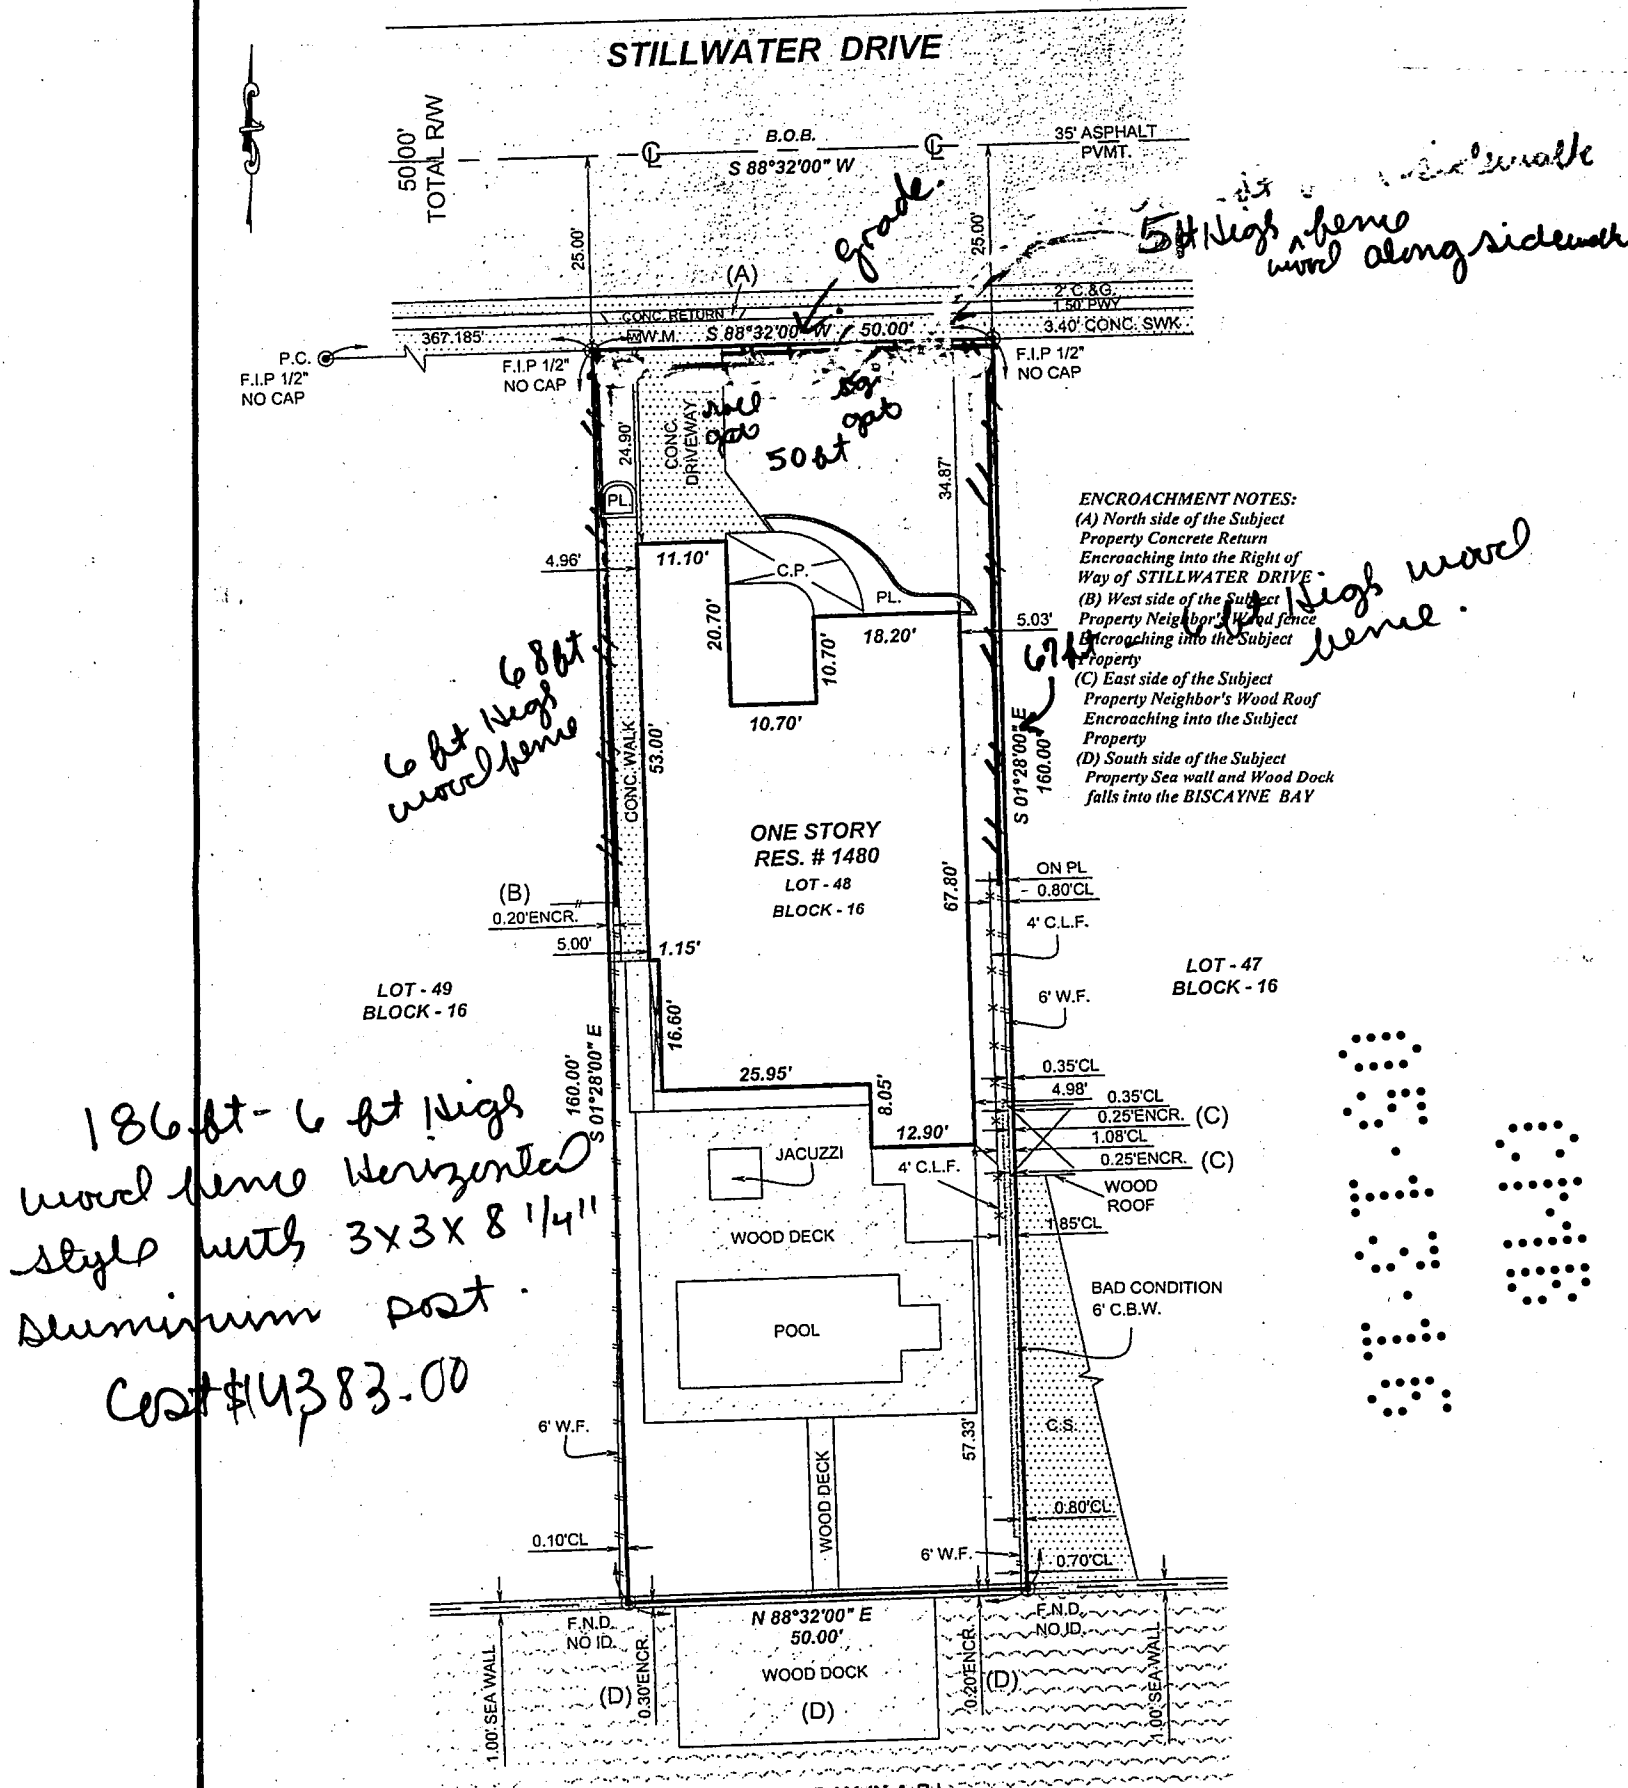 STILLWATER DRIVE
50.00'
TOTAL R/W
B.O.B.
S 88°32'00" W
35' ASPHALT
PVMT.
25.00'
25.00'
grade.
sidewalk
5ft High fence
wood along sidewalk
(A)
2' C.&G.
1.50' PWY
3.40' CONC. SWK.
CONC. RETURN
367.185'
W.M.
S 88°32'00" W
50.00'
P.C.
F.I.P 1/2"
NO CAP
F.I.P 1/2"
NO CAP
F.I.P 1/2"
NO CAP
roll
gate
gate
50 ft
24.90'
CONC.
DRIVEWAY
34.87'
PL.
4.96'
11.10'
C.P.
PL.
20.70'
10.70'
18.20'
10.70'
5.03'
ENCROACHMENT NOTES:
(A) North side of the Subject
Property Concrete Return
Encroaching into the Right of
Way of STILLWATER DRIVE
(B) West side of the Subject
Property Neighbor's Wood fence
Encroaching into the Subject
Property
(C) East side of the Subject
Property Neighbor's Wood Roof
Encroaching into the Subject
Property
(D) South side of the Subject
Property Sea wall and Wood Dock
falls into the BISCAYNE BAY
67 ft - 6 ft High wood
fence.
68 ft
6 ft High
wood fence
CONC. WALK
53.00'
S 01°28'00" E
160.00'
ONE STORY
RES. # 1480
LOT - 48
BLOCK - 16
67.80'
ON PL
0.80'CL
4' C.L.F.
(B)
0.20'ENCR.
5.00'
1.15'
LOT - 49
BLOCK - 16
LOT - 47
BLOCK - 16
6' W.F.
16.60'
160.00'
S 01°28'00" E
25.95'
8.05'
12.90'
0.35'CL
4.98'
0.35'CL
0.25'ENCR. (C)
1.08'CL
0.25'ENCR. (C)
WOOD
ROOF
1.85'CL
4' C.L.F.
JACUZZI
WOOD DECK
POOL
186 ft - 6 ft High
wood fence Horizontal
style with 3x3x8 1/4"
Aluminium post.
Cost $14,383.00
BAD CONDITION
6' C.B.W.
6' W.F.
57.33'
C.S.
WOOD DECK
0.80'CL
0.10'CL
6' W.F.
0.70'CL
N 88°32'00" E
50.00'
F.N.D.
NO ID.
F.N.D.
NO ID.
1.00' SEA WALL
0.30'ENCR.
(D)
WOOD DOCK
(D)
0.20'ENCR.
(D)
1.00' SEA WALL